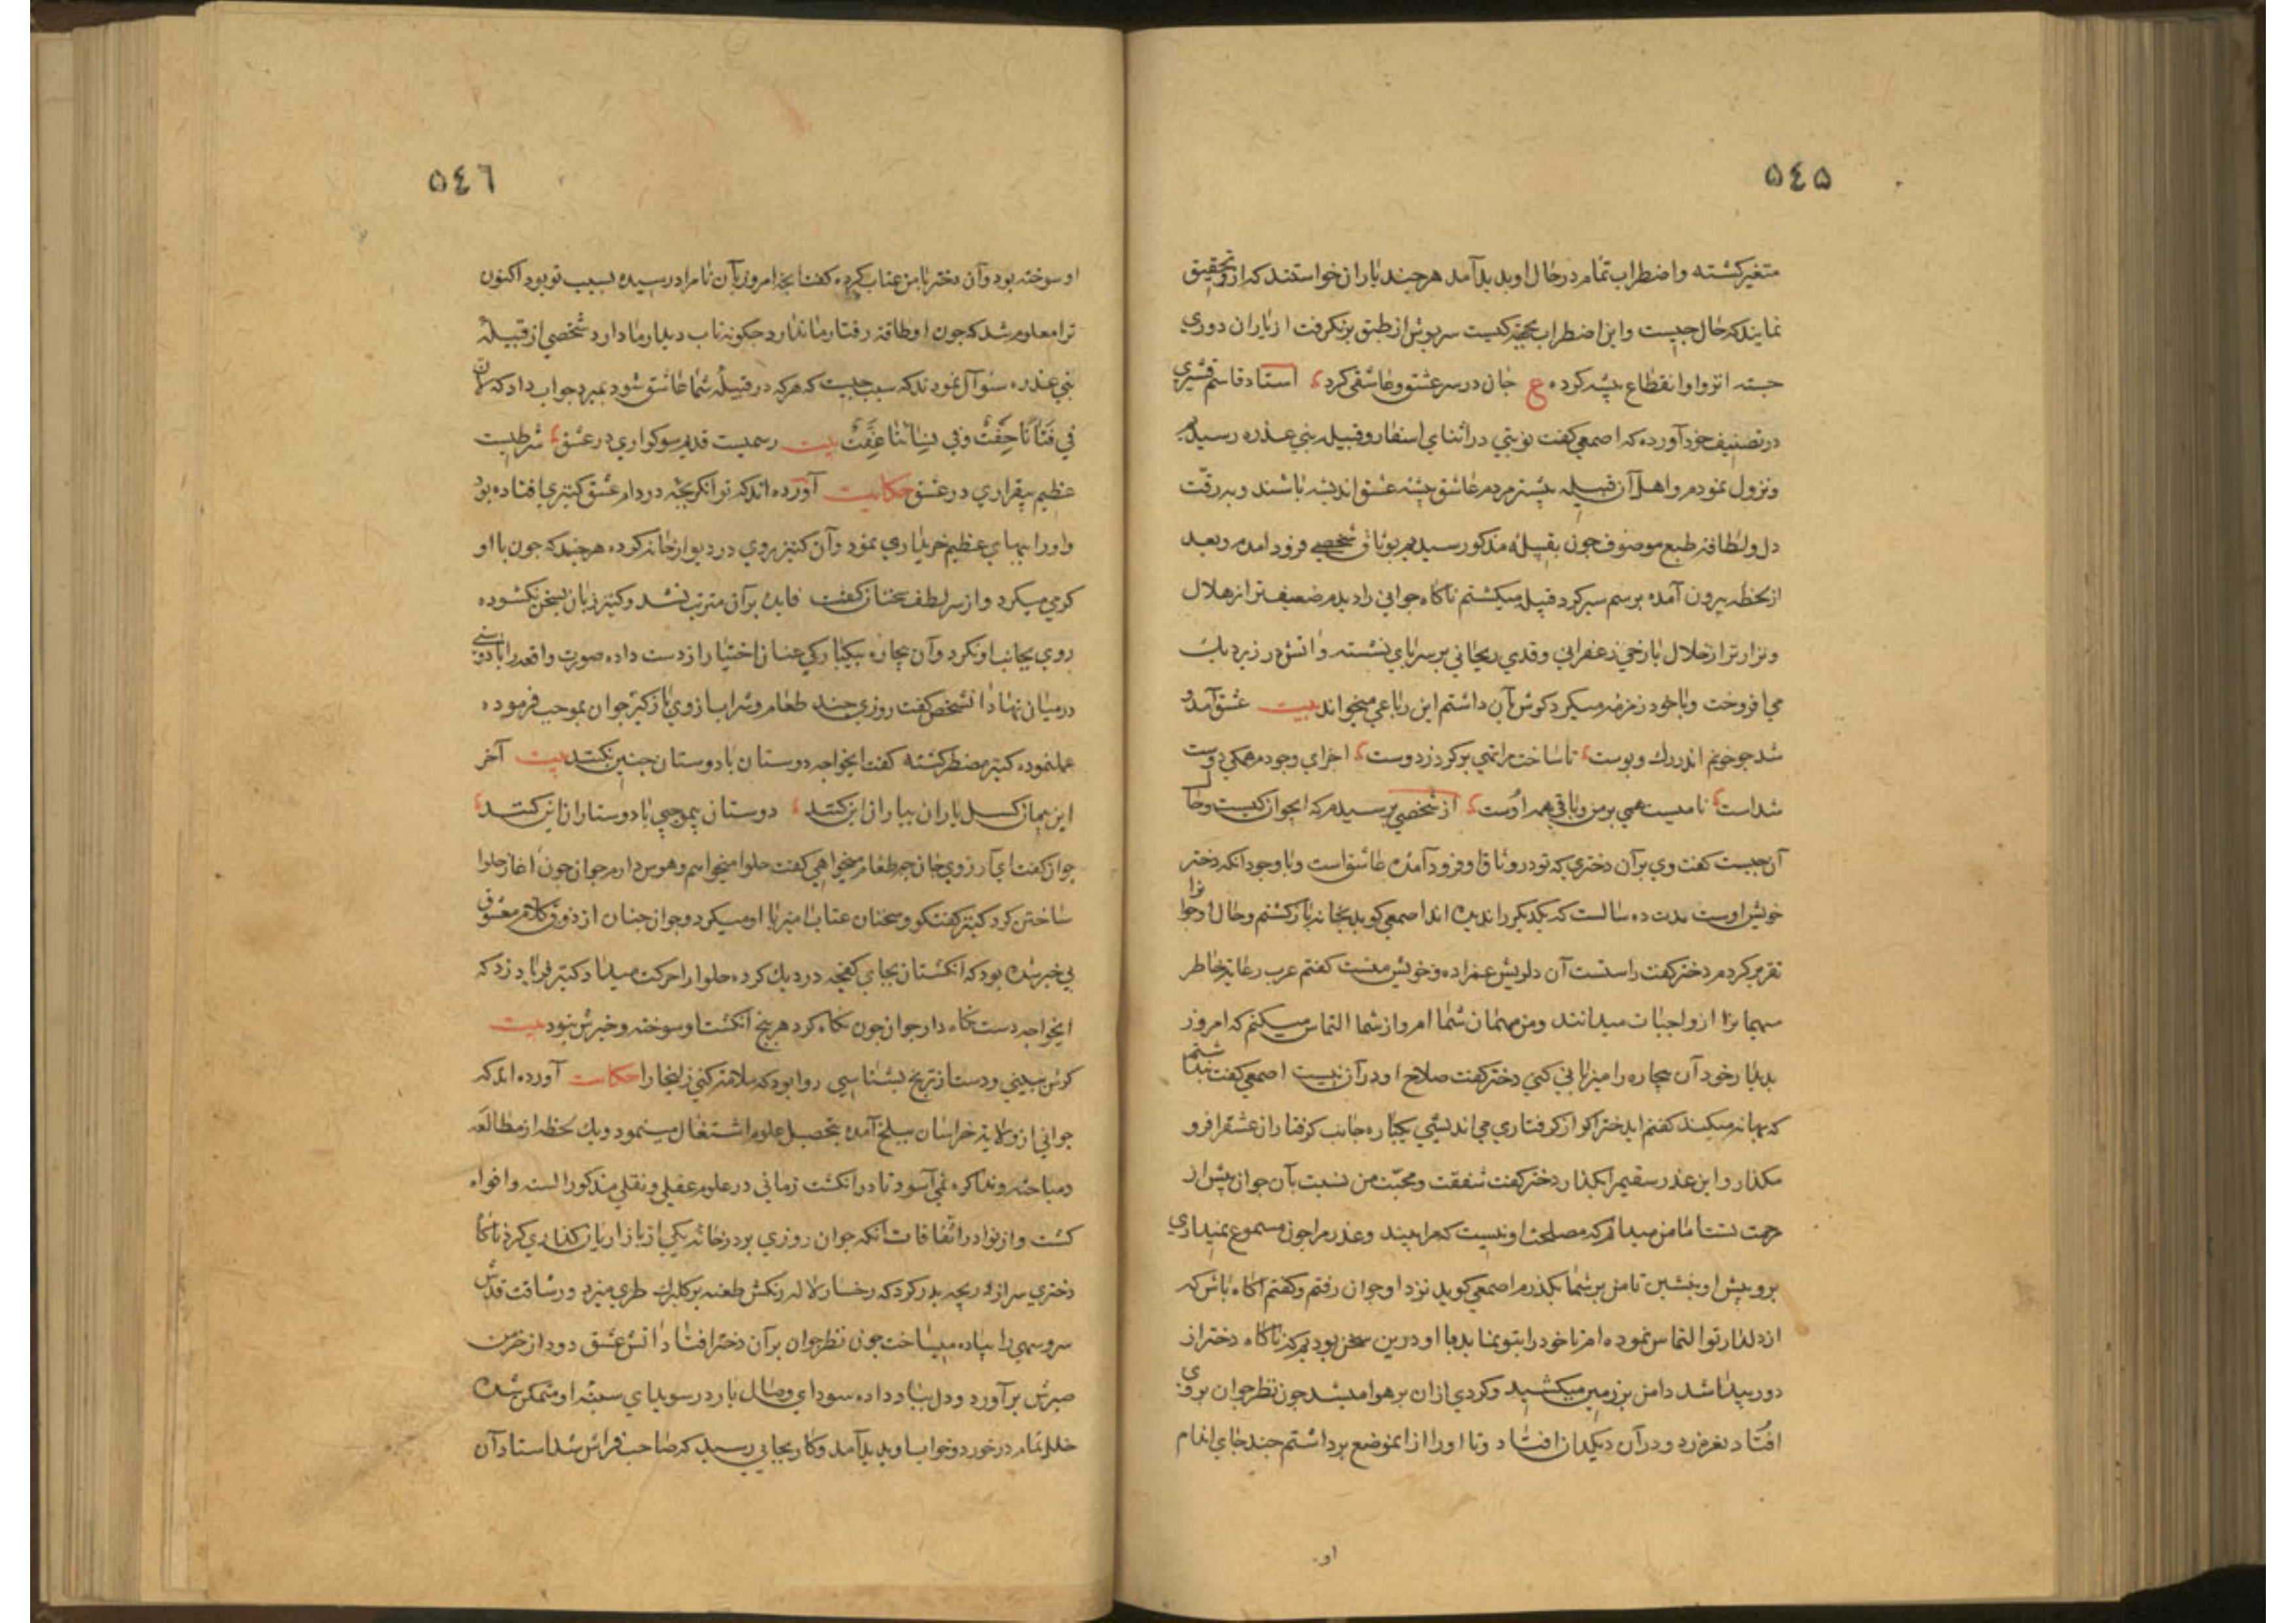 ٥٤٥
متغیر کشته واضطراب تمام در حال او بدید آمد هرچند یاران خواستند که ازو تحقیق
نمایند که حال چیست واین اضطراب بجهة کیست سرپوش از طبق برنکرفت از یاران دوری
جسته انزوا وانقطاع پیشه کرده ع جان در سر عشق وعاشقی کرد استاد قاسم قشیری
در تصنیف خود آورده که اصمعی کفت نوبتی در اثنای اسفار وقبیله بنی عذره رسیدم
ونزول نمودم واهل آن قبیله بیشتر مردم عاشق پیشه عشق اندیشه باشند وبه رقّت
دل ولطافة طبع موصوف جون بقبیله مذکور رسیدم بوثاق شخصی فرود آمدم وبعد
از لحظه بیرون آمده برسم سیر کرد قبیله میکشتم ناکاه جوانی را دیدم ضعیفتر از هلال
ونزارتر از خلال با رخی زعفرانی وقدی ریحانی بر سر پای نشسته وآتش در زیر دیك
می افروخت وبا خود زمزمه میکرد کوش بآن داشتم این رباعی میخواند بیت عشق آمد و
شد جو خونم اندر رك وپوست تا ساخت مرا تهی وپر کرد ز دوست اجزای وجودم همکی دوست
شداست نامیست همی بر من وباقی همه اوست از شخصی پرسیدم که این جوان کیست وحال
آن جیست کفت وی بر آن دختری که تو در وثاق او فرود آمده عاشق است وبا وجود آنکه دختر
خویش اوست مدت ده سالست که یکدیکر را ندیده اند اصمعی کوید بخانه باز کشتم وحال آن جوانرا
تقریر کردم دختر کفت راستست آن دلریش عمزاده وخویش منست کفتم عرب رعایة خاطر
میهمانرا از واجبات میدانند ومن مهمان شما ام واز شما التماس میکنم که امروز
بدیدار خود آن بیچاره را میزبانی کنی دختر کفت صلاح او در آن نیست اصمعی کفت پنداشتم
که بهانه میکند کفتم ای دختر اکر از کرفتاری می اندیشی یکباره جانب کرفتاران عشق را فرو
مکذار واین عذر سقیم را بکذار دختر کفت شفقت ومحبّت من نسبت بآن جوان پیش از
امّا من میدانم که مصلحت او نیست که مرا بیند وعذر مرا چون مسموع نمیداری
برو پیش او بنشین تا من بر شما بکذرم اصمعی کوید نزد او جوان رفتم وکفتم آکاه باش که
از دلدار تو التماس نموده ام تا خود را بتو نماید با او درین سخن بودم که ناکاه دختر از
دور پیدا شد دامن بر زمین میکشید وکردی از آن بر هوا میشد جون نظر جوان بروی
افتاد نعره زد ودر آن دیکدان افتاد وتا او را از آن موضع برداشتم جند جای اندام
او
٥٤٦
او سوخته بود وآن دختر با من عتاب کرده کفت آنچه امروز بآن نامراد رسیده بسبب تو بود اکنون
ترا معلوم شد که جون او طاقة رفتار ما ندارد جکونه تاب دیدار ما دارد شخصی از قبیلهٔ
بنی عذره سوآل نمودند که سبب جیست که هرکه در قبیلهٔ شما عاشق شود بمیرد جواب داد که لان
فی فتاتنا خفّت وفی نسائنا عفّت بیت رسمیست قدیم سوکواری در عشق شرطیست
عظیم بیقراری در عشق حکایت آورده اند که توانکر بچه در دام عشق کنیزی افتاده بود
واورا ببهای عظیم خریداری نمود وآن کنیز روی در دیوار خانه کرده هرجند که جون با او
کرمی میکرد واز سر لطف سخنان کفت فایده بر آن مترتب نشد وکنیز زبان بسخن نکشوده
روی بجانب او نکرد وآن بیچاره بیکبارکی عنان اختیار از دست داده صورت واقعه را با دوستی
در میان نهاد آنشخص کفت روزی جند طعام وشراب ازوی بازکیر جوان بموجب فرموده
عملنموده کنیز مضطر کشته کفت ایخواجه دوستان با دوستان جنین نکنند بیت آخر
این پیمان کسل یاران بیاران این کنند دوستان بیموجبی با دوستاران این کنند
جوان کفت ای آرزوی جان چه طعام میخواهی کفت حلوا میخواهم وهوس دارم جوان جون آغاز حلوا
ساختن کرد کنیز کفتکو وسخنان عتاب آمیز با او میکرد وجوان جنان از ذوق کلام معشوق
بی خبر شده بود که انکشتان بجای کفچه در دیك کرده حلوا را حرکت میداد کنیز فریاد زد که
ایخواجه دست نکاه دار جوان جون نکاه کرد هر پنج انکشت او سوخته وخبرش نبود بیت
کرش ببینی ودست از ترنج بشناسی روا بود که ملامت کنی زلیخا را حکایت آورده اند که
جوانی از ولایة خراسان ببلخ آمده بتحصیل علوم اشتغال مینمود ویك لحظه از مطالعه
ومباحثه ومذاکره نمی آسود تا در اندك زمانی در علوم عقلی ونقلی مذکور السنه وافواه
کشت واز نوادر اتفاقات آنکه جوان روزی بر در خانه یکی از بازاریان کذاری کرد ناکاه
دختری سر از دریچه بدر کرد که رخسار لاله رنکش طعنه بر کلبرك طری میزد ورشاقت قدش
سروسهی را پیاده میساخت جون نظر جوان بر آن دختر افتاد آتش عشق دود از خرمن
صبرش برآورد ودل بباد داده سودای وصال یار در سویدای سینهٔ او متمکن شده
خلل تمام در خورد وخواب او بدید آمد وکار بجایی رسید که صاحب فراش شد استاد آن